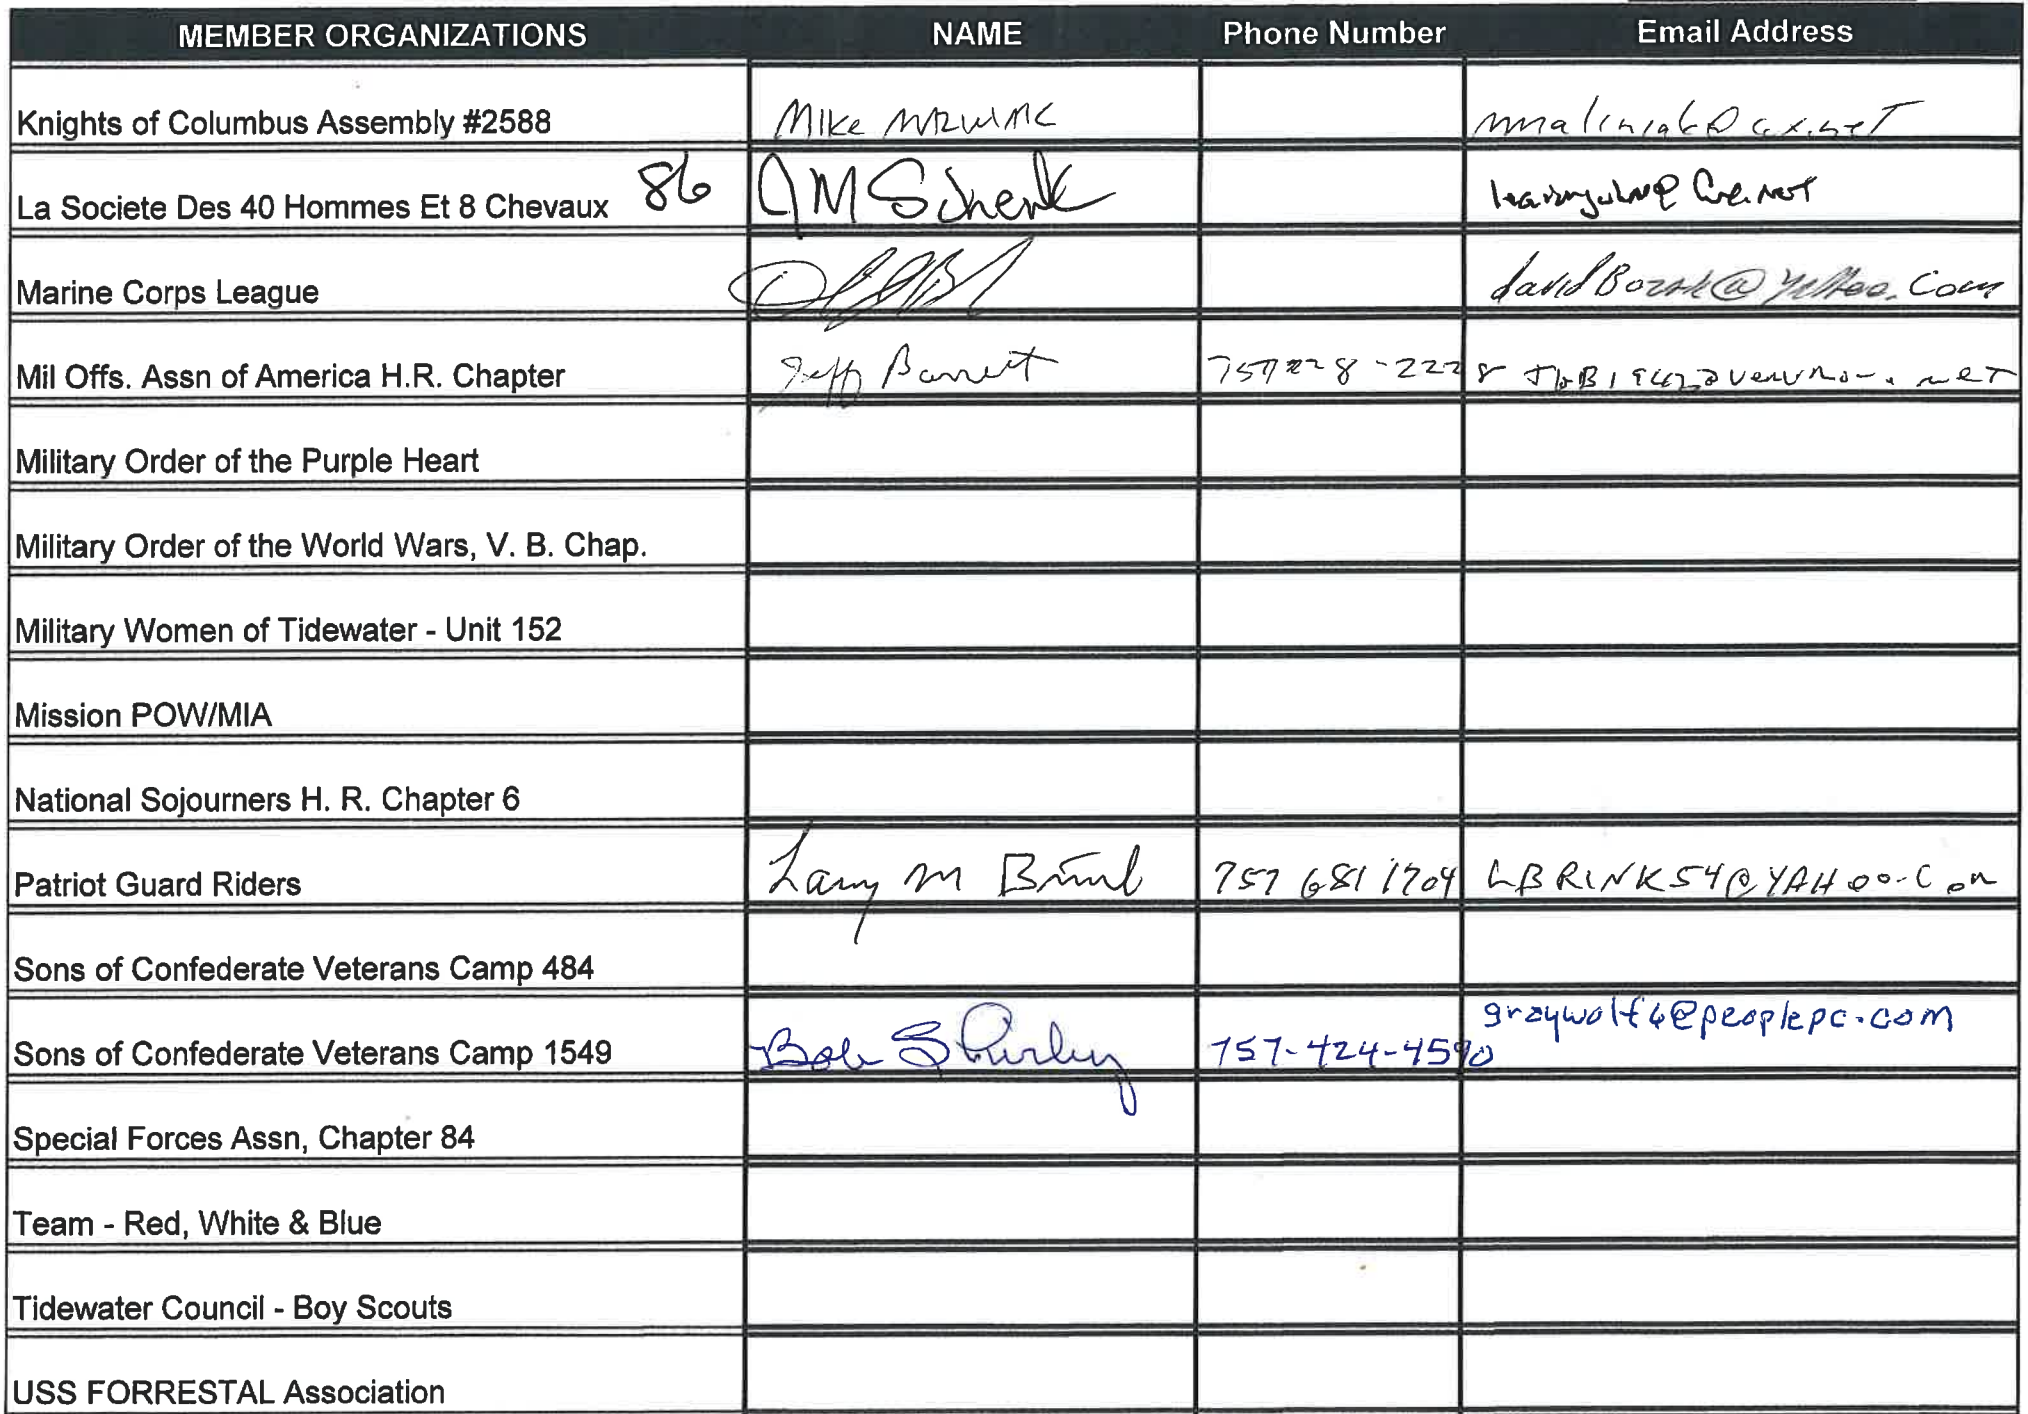 MEMBER ORGANIZATIONS NAME Phone Number Email Address
Knights of Columbus Assembly #2588 Mike
La Societe Des 40 Hommes Et 8 Chevaux 86 JM Schenk
Marine Corps League
Mil Offs. Assn of America H.R. Chapter Jeff Barrett
Military Order of the Purple Heart
Military Order of the World Wars, V. B. Chap.
Military Women of Tidewater - Unit 152
Mission POW/MIA
National Sojourners H. R. Chapter 6
Patriot Guard Riders Larry M 757 681 1704 LBRINK54@YAHOO.COM
Sons of Confederate Veterans Camp 484
Sons of Confederate Veterans Camp 1549 Bob Shirley 757-424-4590 graywolf6@peoplepc.com
Special Forces Assn, Chapter 84
Team - Red, White & Blue
Tidewater Council - Boy Scouts
USS FORRESTAL Association